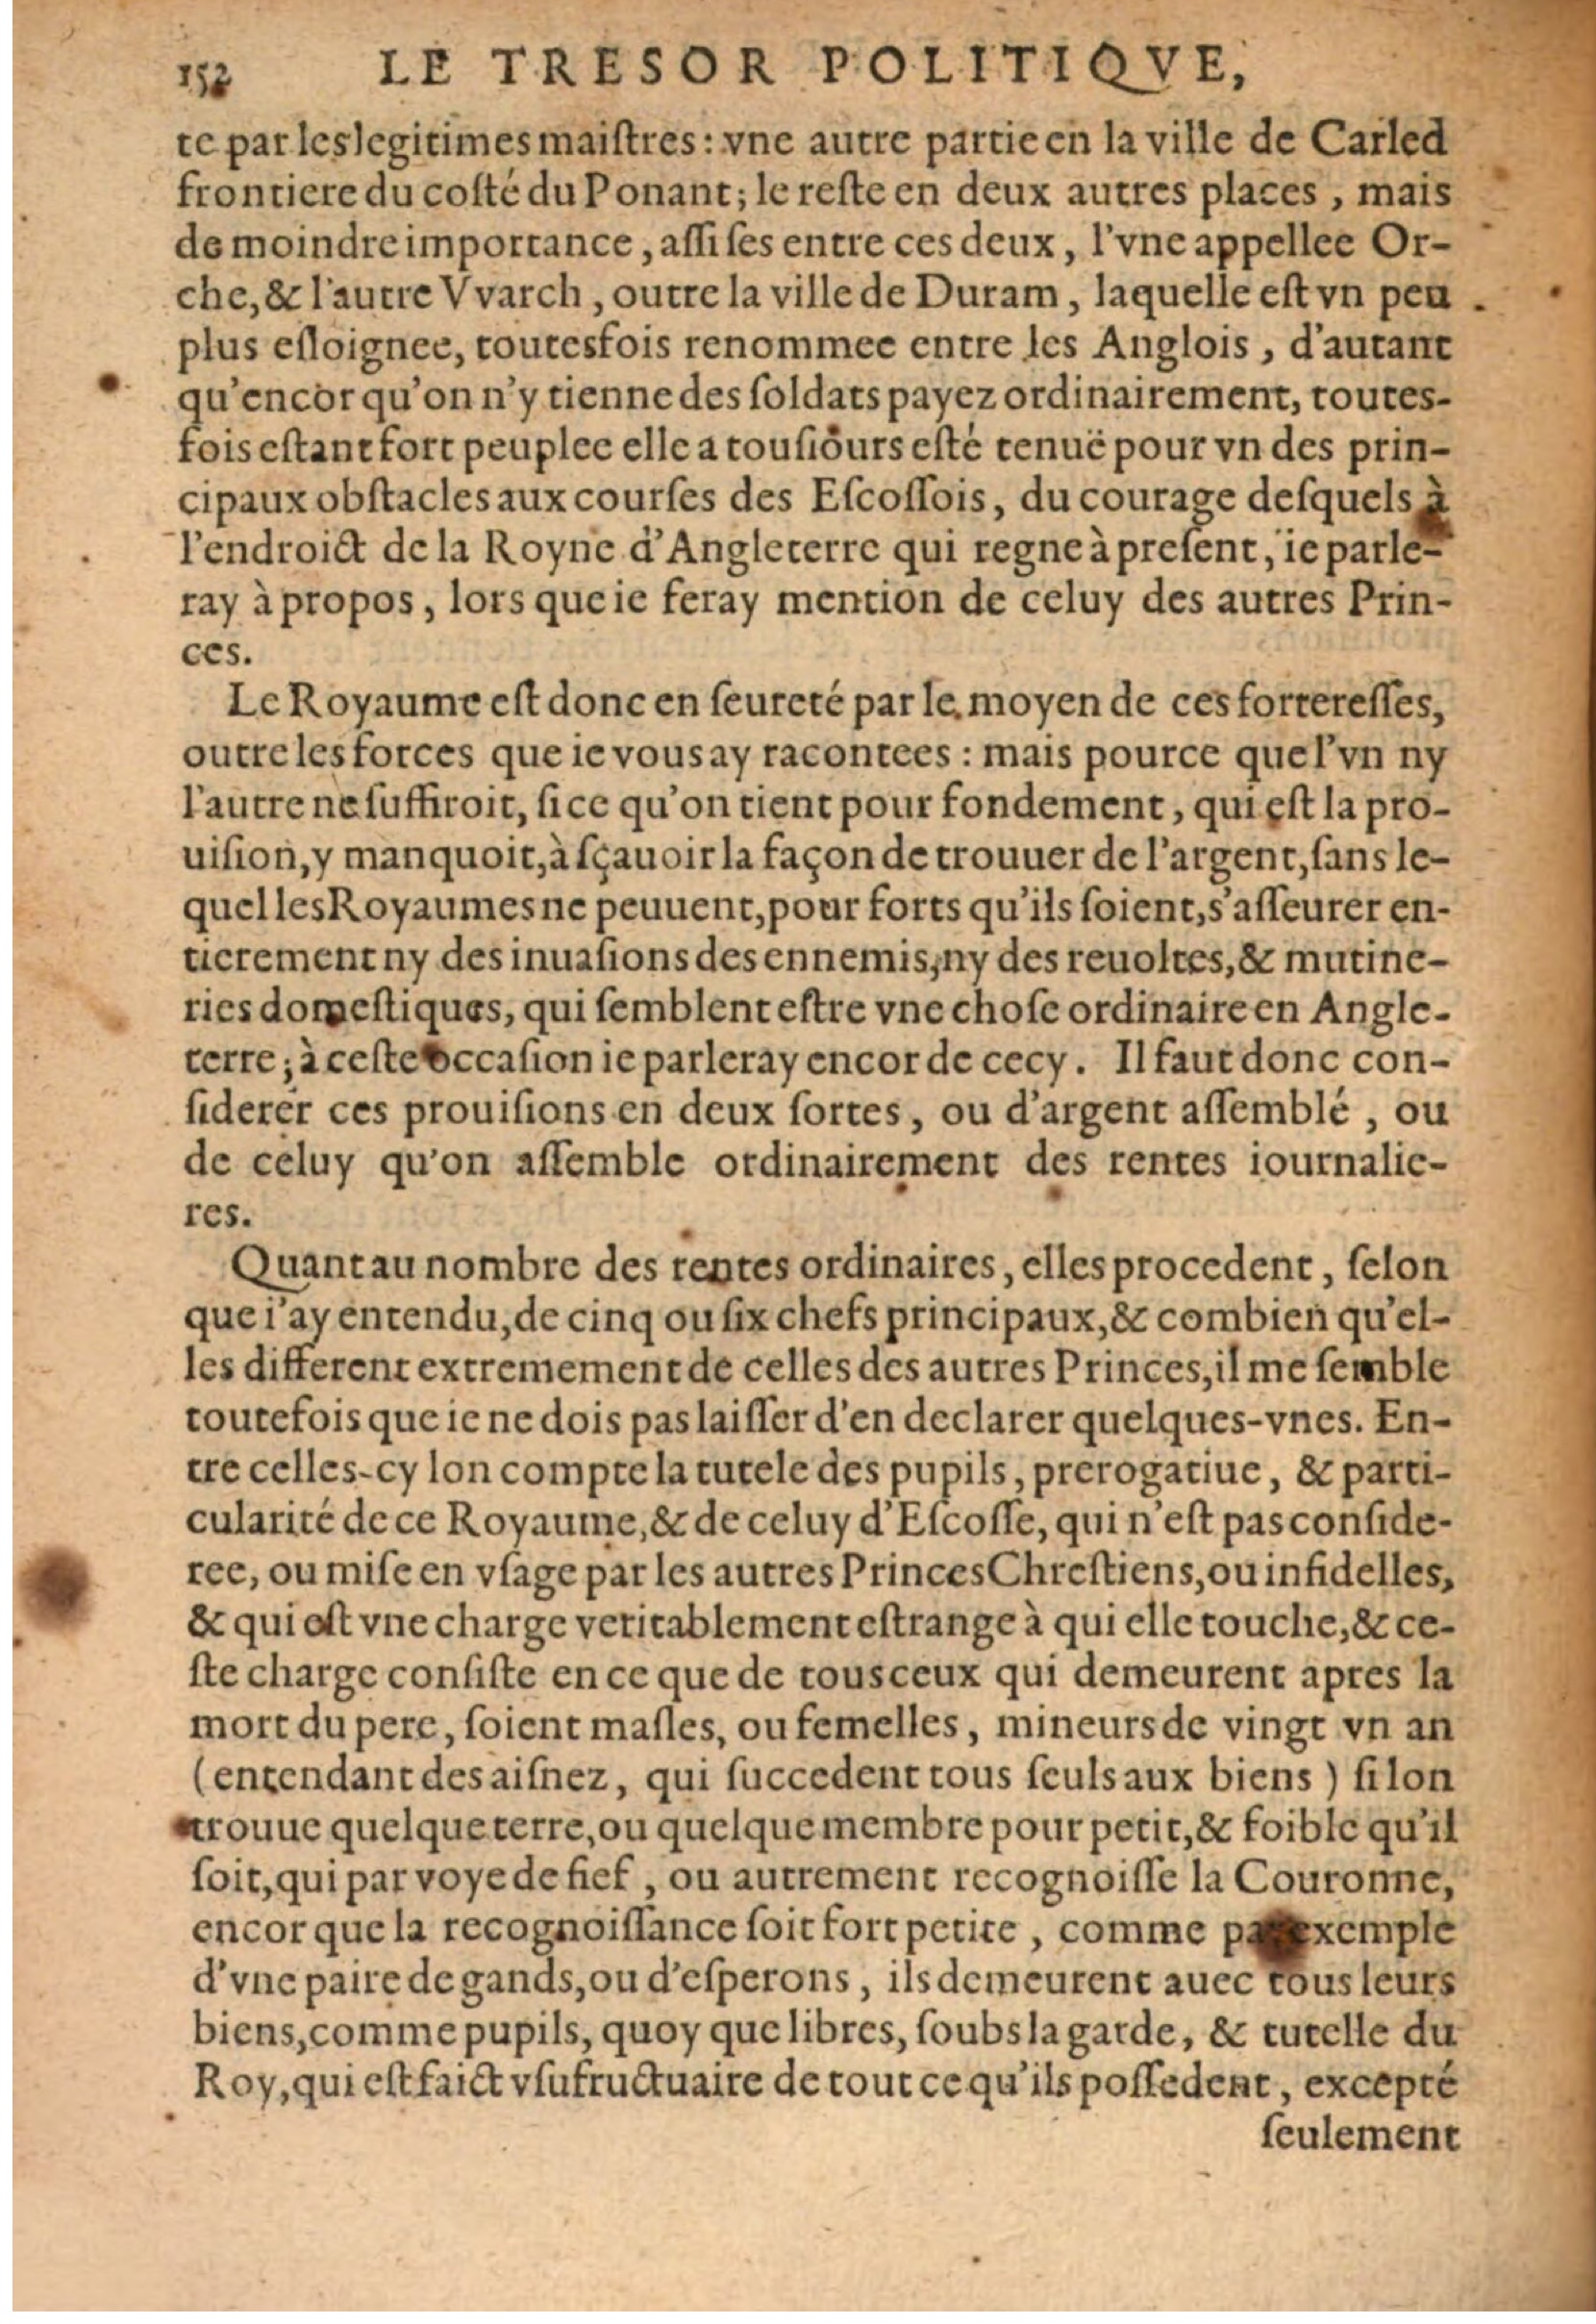 152 LE TRESOR POLITIQVE,
te par les legitimes maiſtres : vne autre partie en la ville de Carled
frontiere du coſté du Ponant; le reſte en deux autres places, mais
de moindre importance, aſſiſes entre ces deux, l'vne appellee Or-
che, & l'autre Vvarch, outre la ville de Duram, laquelle eſt vn peu
plus eſloignee, toutesfois renommee entre les Anglois, d'autant
qu'encor qu'on n'y tienne des ſoldats payez ordinairement, toutes-
fois eſtant fort peuplee elle a touſiours eſté tenuë pour vn des prin-
cipaux obſtacles aux courſes des Eſcoſſois, du courage deſquels à
l'endroict de la Royne d'Angleterre qui regne à preſent, ie parle-
ray à propos, lors que ie feray mention de celuy des autres Prin-
ces.
Le Royaume eſt donc en ſeureté par le moyen de ces fortereſſes,
outre les forces que ie vous ay racontees : mais pource que l'vn ny
l'autre ne ſuffiroit, ſi ce qu'on tient pour fondement, qui eſt la pro-
uiſion, y manquoit, à ſçauoir la façon de trouuer de l'argent, ſans le-
quel les Royaumes ne peuuent, pour forts qu'ils ſoient, s'aſſeurer en-
tierement ny des inuaſions des ennemis, ny des reuoltes, & mutine-
ries domeſtiques, qui ſemblent eſtre vne choſe ordinaire en Angle-
terre; à ceſte occaſion ie parleray encor de cecy. Il faut donc con-
ſiderer ces prouiſions en deux ſortes, ou d'argent aſſemblé, ou
de celuy qu'on aſſemble ordinairement des rentes iournalie-
res.
Quant au nombre des rentes ordinaires, elles procedent, ſelon
que i'ay entendu, de cinq ou ſix chefs principaux, & combien qu'el-
les different extremement de celles des autres Princes, il me ſemble
toutefois que ie ne dois pas laiſſer d'en declarer quelques-vnes. En-
tre celles-cy lon compte la tutele des pupils, prerogatiue, & parti-
cularité de ce Royaume, & de celuy d'Eſcoſſe, qui n'eſt pas conſide-
ree, ou miſe en vſage par les autres Princes Chreſtiens, ou infidelles,
& qui eſt vne charge veritablement eſtrange à qui elle touche, & ce-
ſte charge conſiſte en ce que de tous ceux qui demeurent apres la
mort du pere, ſoient maſles, ou femelles, mineurs de vingt vn an
(entendant des aiſnez, qui ſuccedent tous ſeuls aux biens) ſi lon
trouue quelque terre, ou quelque membre pour petit, & foible qu'il
ſoit, qui par voye de fief, ou autrement recognoiſſe la Couronne,
encor que la recognoiſſance ſoit fort petite, comme par exemple
d'vne paire de gands, ou d'eſperons, ils demeurent auec tous leurs
biens, comme pupils, quoy que libres, ſoubs la garde, & tutelle du
Roy, qui eſt faict vſufructuaire de tout ce qu'ils poſſedent, excepté
ſeulement